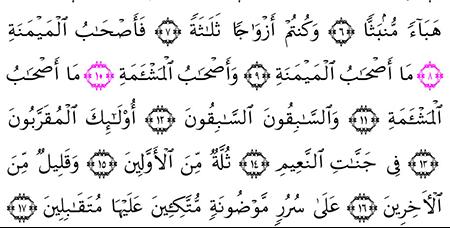 هَبَآءً مُّنۢبَثًّا ﴿٦﴾ وَكُنتُمْ أَزْوَٰجًا ثَلَـٰثَةً ﴿٧﴾ فَأَصْحَـٰبُ ٱلْمَيْمَنَةِ
﴿٨﴾ مَآ أَصْحَـٰبُ ٱلْمَيْمَنَةِ ﴿٩﴾ وَأَصْحَـٰبُ ٱلْمَشْـَٔمَةِ ﴿١٠﴾ مَآ أَصْحَـٰبُ
ٱلْمَشْـَٔمَةِ ﴿١١﴾ وَٱلسَّـٰبِقُونَ ٱلسَّـٰبِقُونَ ﴿١٢﴾ أُو۟لَـٰٓئِكَ ٱلْمُقَرَّبُونَ
﴿١٣﴾ فِى جَنَّـٰتِ ٱلنَّعِيمِ ﴿١٤﴾ ثُلَّةٌ مِّنَ ٱلْأَوَّلِينَ ﴿١٥﴾ وَقَلِيلٌ مِّنَ
ٱلْـَٔاخِرِينَ ﴿١٦﴾ عَلَىٰ سُرُرٍ مَّوْضُونَةٍ مُّتَّكِـِٔينَ عَلَيْهَا مُتَقَـٰبِلِينَ ﴿١٧﴾